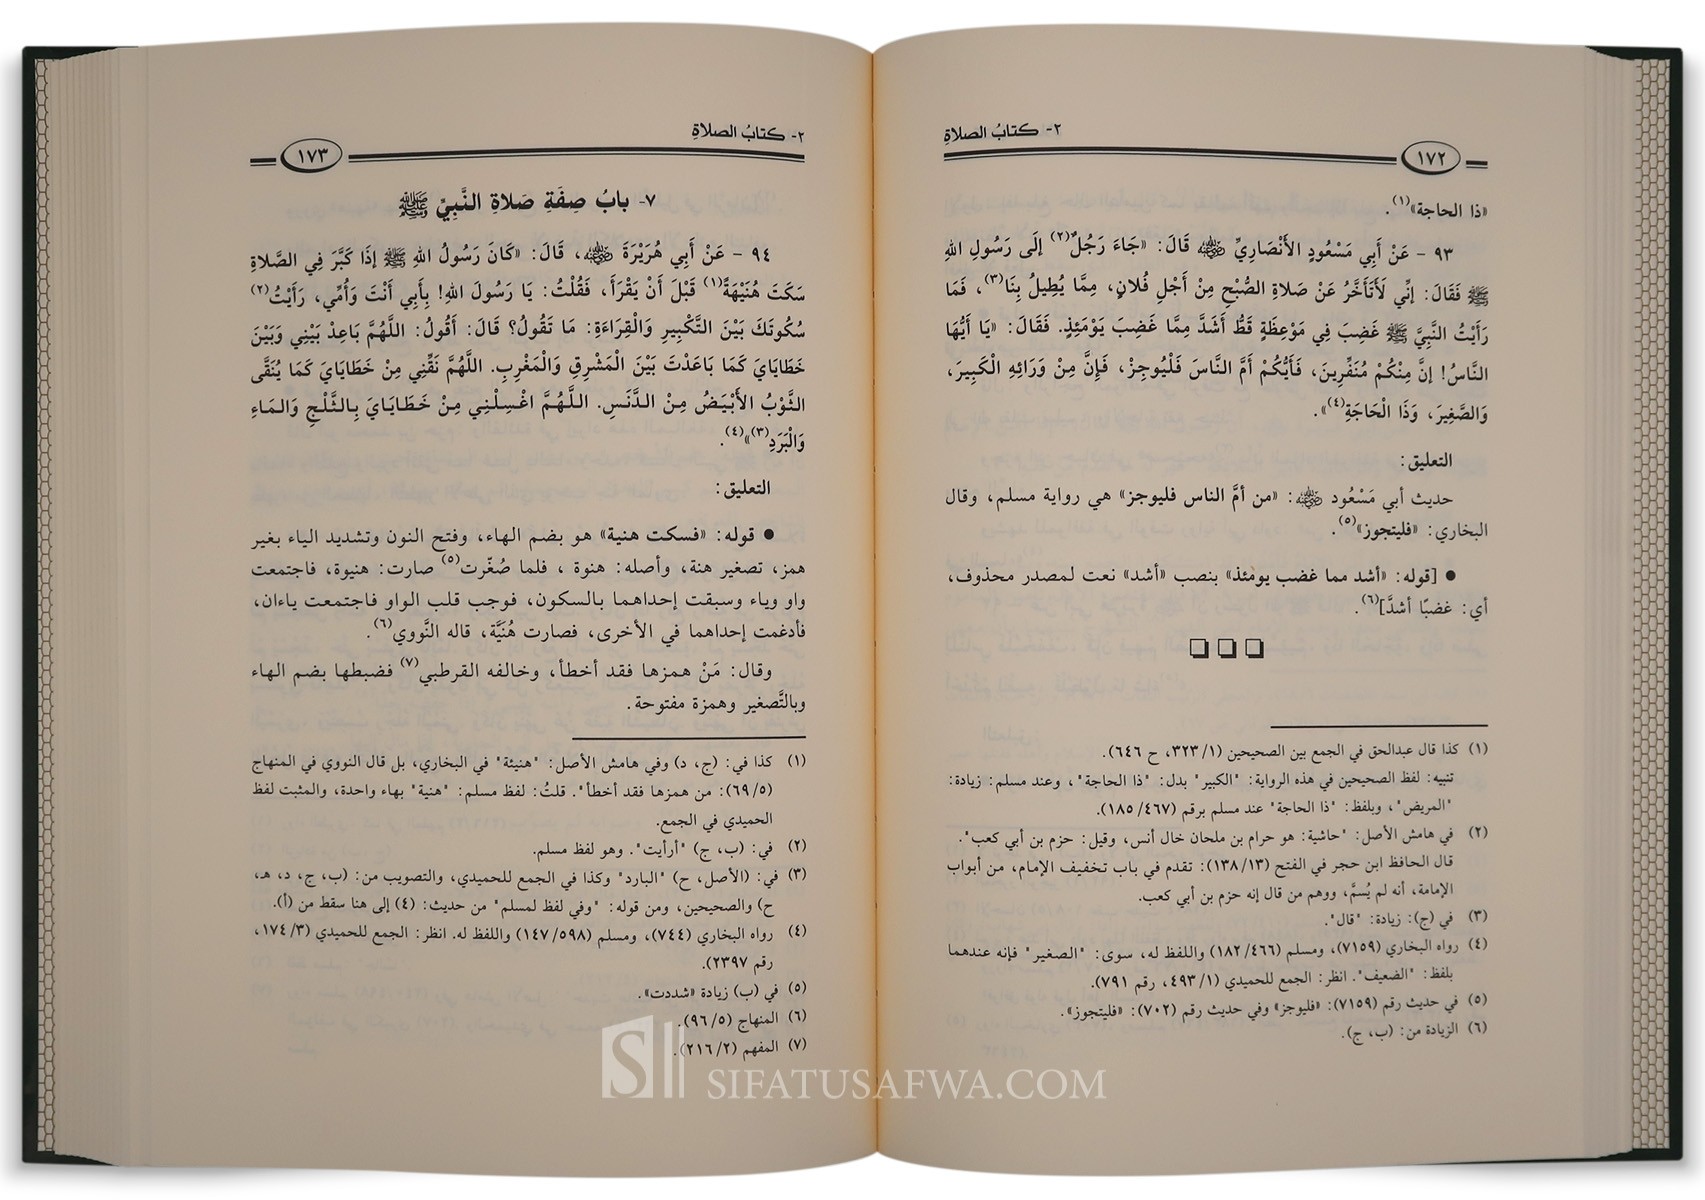 ٢- كتابُ الصلاةِ
١٧٢
«ذا الحاجة»(١).
٩٣ - عَنْ أَبِي مَسْعُودٍ الأَنْصَارِيِّ ﵁ قَالَ: «جَاءَ رَجُلٌ(٢) إلَى رَسُولِ اللهِ
ﷺ فَقَالَ: إنِّي لَأَتَأَخَّرُ عَنْ صَلاةِ الصُّبْحِ مِنْ أَجْلِ فُلانٍ، مِمَّا يُطِيلُ بِنَا(٣)، فَمَا
رَأَيْتُ النَّبِيَّ ﷺ غَضِبَ فِي مَوْعِظَةٍ قَطُّ أَشَدَّ مِمَّا غَضِبَ يَوْمَئِذٍ. فَقَالَ: «يَا أَيُّهَا
النَّاسُ! إنَّ مِنْكُمْ مُنَفِّرِينَ، فَأَيُّكُمْ أَمَّ النَّاسَ فَلْيُوجِزْ، فَإِنَّ مِنْ وَرَائِهِ الْكَبِيرَ،
وَالصَّغِيرَ، وَذَا الْحَاجَةِ(٤)».
التعليق:
حديث أبي مَسْعُود ﵁: «من أمَّ الناس فليوجز» هي رواية مسلم، وقال
البخاري: «فليتجوز»(٥).
● [قوله: «أشد مما غضب يومئذ» بنصب «أشد» نعت لمصدر محذوف،
أي: غضبًا أشدَّ](٦).
(١) كذا قال عبدالحق في الجمع بين الصحيحين (١/ ٣٢٣، ح ٦٤٦).
تنبيه: لفظ الصحيحين في هذه الرواية: "الكبير" بدل: "ذا الحاجة"، وعند مسلم: زيادة:
"المريض"، وبلفظ: "ذا الحاجة" عند مسلم برقم (٤٦٧/ ١٨٥).
(٢) في هامش الأصل: "حاشية: هو حرام بن ملحان خال أنس، وقيل: حزم بن أبي كعب".
قال الحافظ ابن حجر في الفتح (١٣/ ١٣٨): تقدم في باب تخفيف الإمام، من أبواب
الإمامة، أنه لم يُسمَّ، ووهم من قال إنه حزم بن أبي كعب.
(٣) في (ج): زيادة: "قال".
(٤) رواه البخاري (٧١٥٩)، ومسلم (٤٦٦/ ١٨٢) واللفظ له، سوى: "الصغير" فإنه عندهما
بلفظ: "الضعيف". انظر: الجمع للحميدي (١/ ٤٩٣، رقم ٧٩١).
(٥) في حديث رقم (٧١٥٩): «فليوجز» وفي حديث رقم (٧٠٢): «فليتجوز».
(٦) الزيادة من: (ب، ج).
٢- كتابُ الصلاةِ
١٧٣
٧- بابُ صِفَةِ صَلاةِ النَّبِيِّ ﷺ
٩٤ - عَنْ أَبِي هُرَيْرَةَ ﵁، قَالَ: «كَانَ رَسُولُ اللهِ ﷺ إذَا كَبَّرَ فِي الصَّلاةِ
سَكَتَ هُنَيْهَةً(١) قَبْلَ أَنْ يَقْرَأَ، فَقُلْتُ: يَا رَسُولَ اللهِ! بِأَبِي أَنْتَ وَأُمِّي، رَأَيْتُ(٢)
سُكُوتَكَ بَيْنَ التَّكْبِيرِ وَالْقِرَاءَةِ: مَا تَقُولُ؟ قَالَ: أَقُولُ: اللَّهُمَّ بَاعِدْ بَيْنِي وَبَيْنَ
خَطَايَايَ كَمَا بَاعَدْتَ بَيْنَ الْمَشْرِقِ وَالْمَغْرِبِ. اللَّهُمَّ نَقِّنِي مِنْ خَطَايَايَ كَمَا يُنَقَّى
الثَّوْبُ الأَبْيَضُ مِنْ الدَّنَسِ. اللَّهُمَّ اغْسِلْنِي مِنْ خَطَايَايَ بِالثَّلْجِ وَالْمَاءِ
وَالْبَرَدِ(٣)»(٤).
التعليق:
● قوله: «فسكت هنية» هو بضم الهاء، وفتح النون وتشديد الياء بغير
همز، تصغير هنة، وأصله: هنوة ، فلما صُغّرت(٥) صارت: هنيوة، فاجتمعت
واو وياء وسبقت إحداهما بالسكون، فوجب قلب الواو فاجتمعت ياءان،
فأدغمت إحداهما في الأخرى، فصارت هُنَيَّة، قاله النَّووي(٦).
وقال: مَنْ همزها فقد أخطأ، وخالفه القرطبي(٧) فضبطها بضم الهاء
وبالتَّصغير وهمزة مفتوحة.
(١) كذا في: (ج، د) وفي هامش الأصل: "هنيئة" في البخاري، بل قال النووي في المنهاج
(٥/ ٦٩): من همزها فقد أخطأ". قلتُ: لفظ مسلم: "هنية" بهاء واحدة، والمثبت لفظ
الحميدي في الجمع.
(٢) في: (ب، ج) "أرأيت". وهو لفظ مسلم.
(٣) في: (الأصل، ح) "البارد" وكذا في الجمع للحميدي، والتصويب من: (ب، ج، د، هـ،
ح) والصحيحين، ومن قوله: "وفي لفظ لمسلم" من حديث: (٤) إلى هنا سقط من (أ).
(٤) رواه البخاري (٧٤٤)، ومسلم (٥٩٨/ ١٤٧) واللفظ له. انظر: الجمع للحميدي (٣/ ١٧٤،
رقم ٢٣٩٧).
(٥) في (ب) زيادة «شددت».
(٦) المنهاج (٥/ ٩٦).
(٧) المفهم (٢/ ٢١٦).
S SIFATUSAFWA.COM